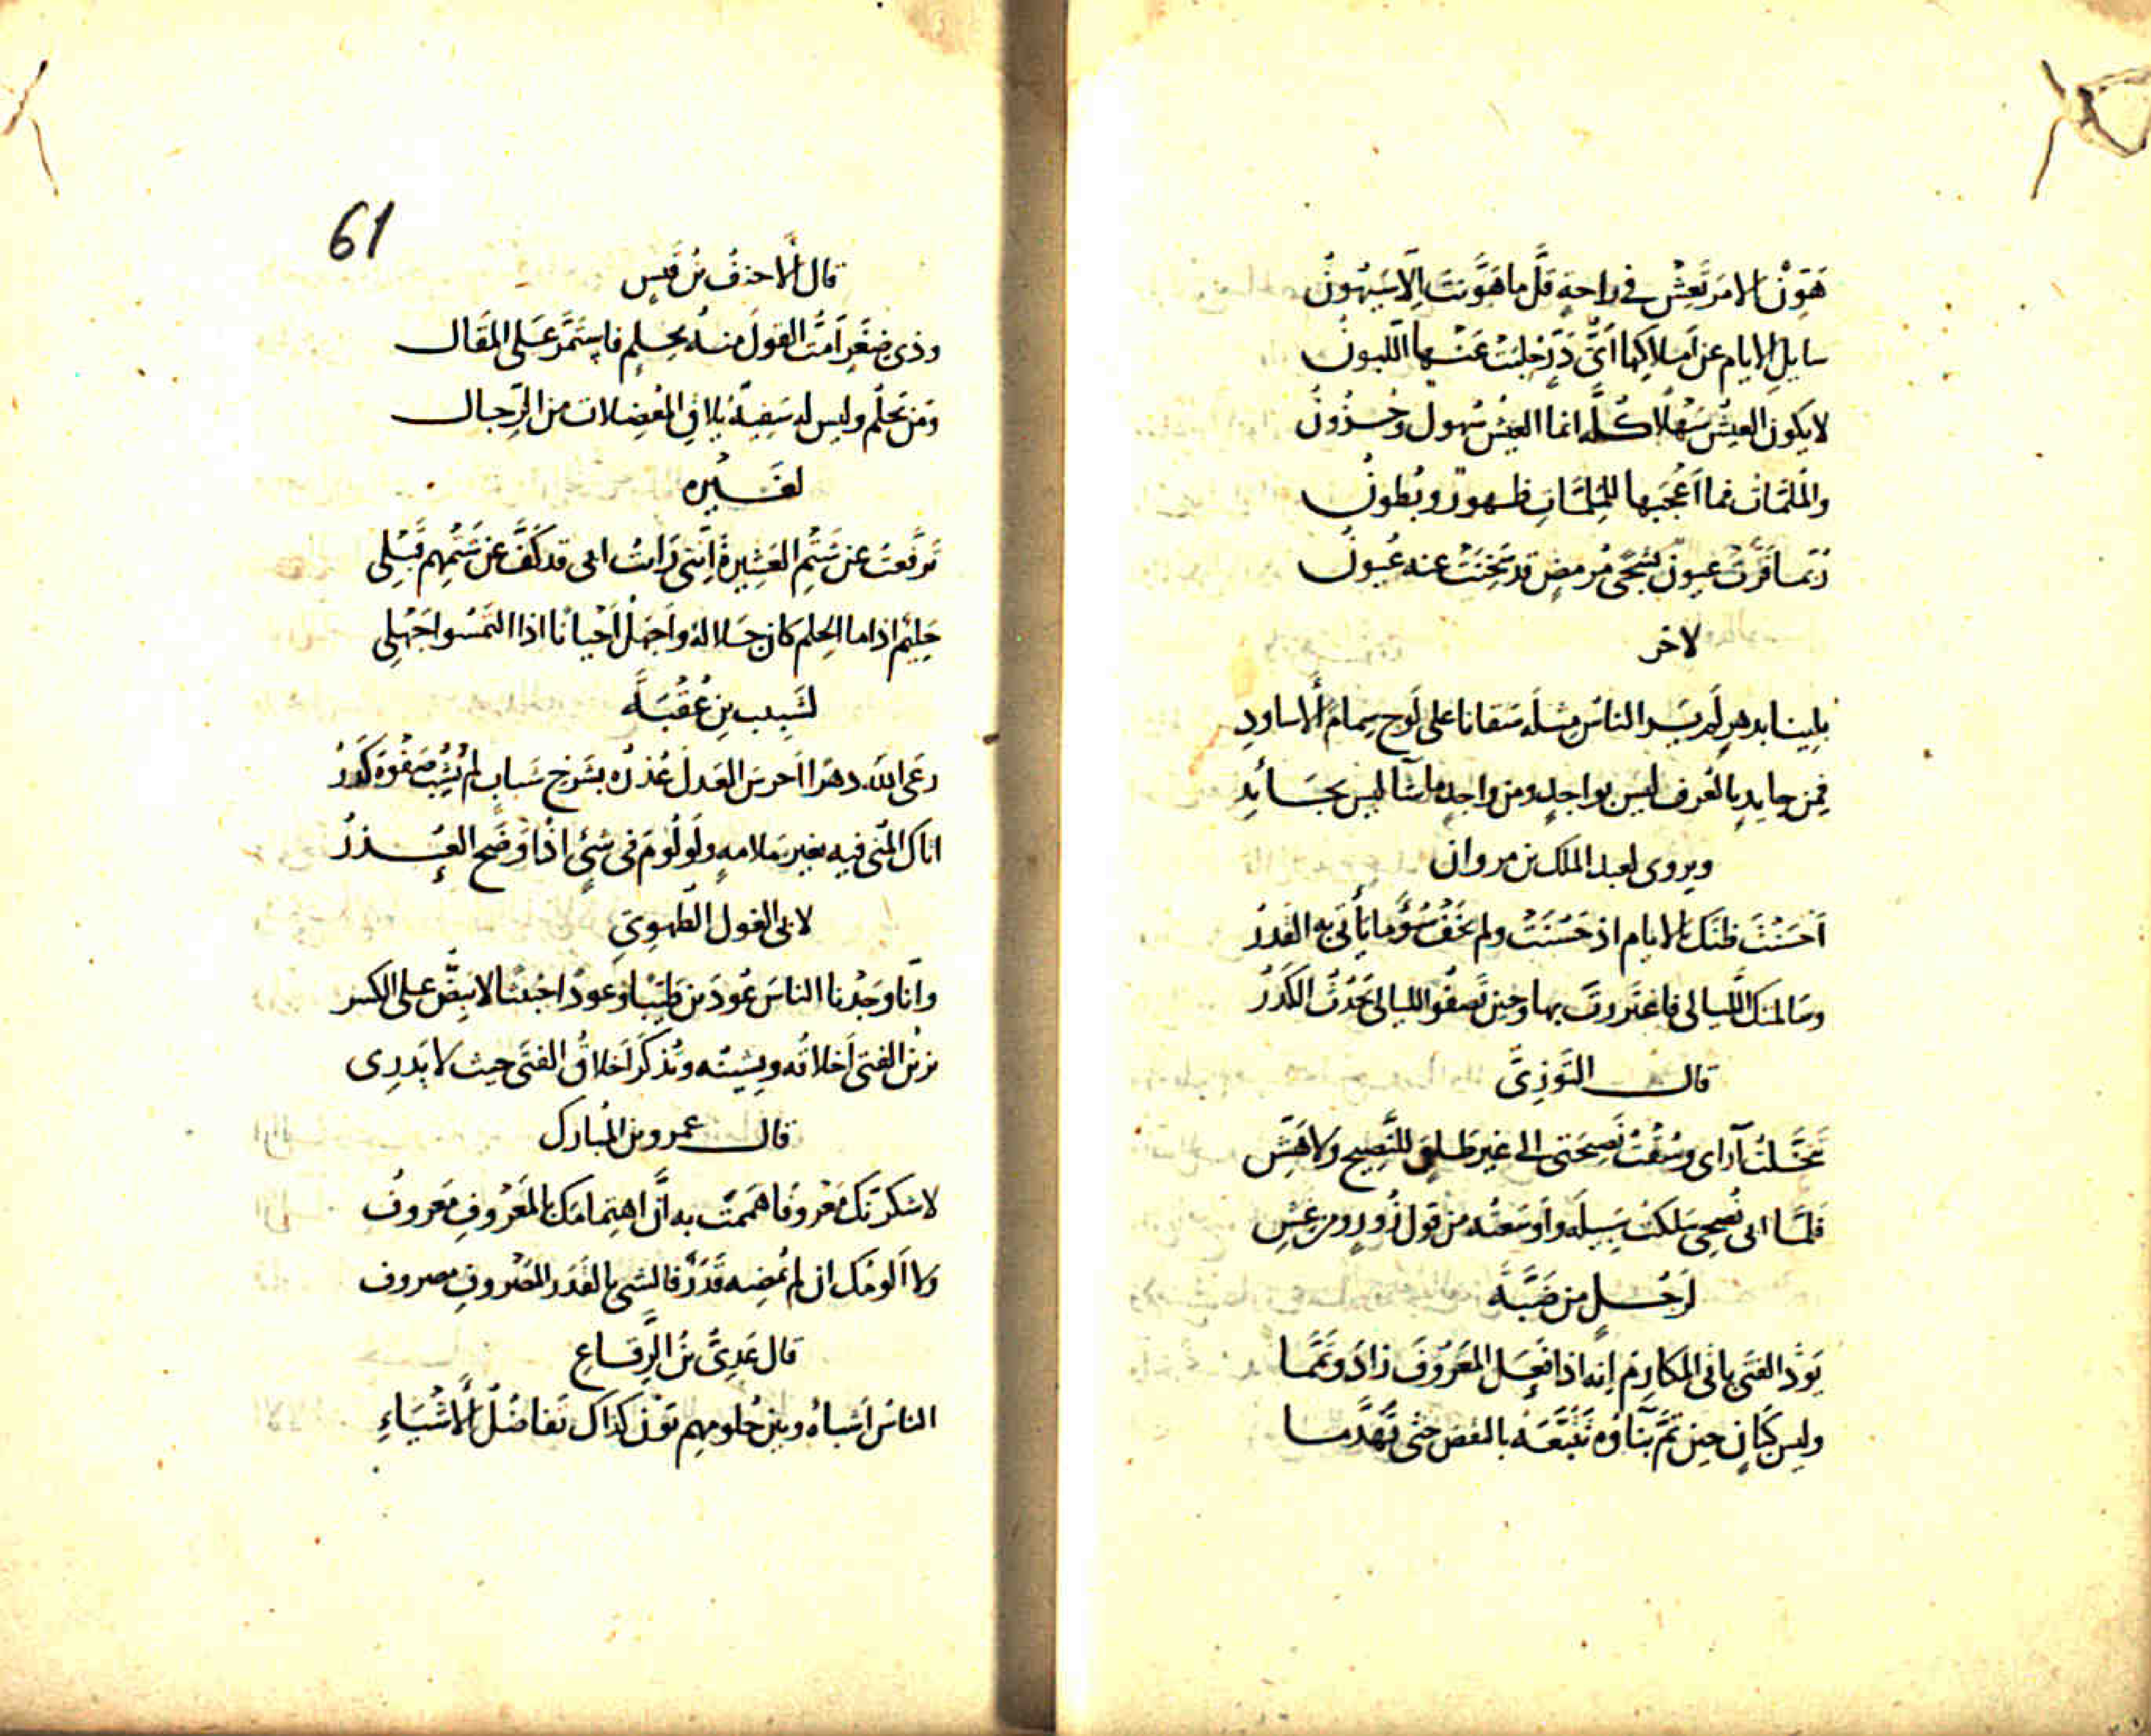 هَوِّنْ الامرَ تَعِشْ في راحةٍ قَلَّ ما هَوَّنتَ إلّا سَيَهُونُ
سايلِ الايامَ عن أملاكِها أيُّ دَرٍّ حُلِبَتْ عَنْهَا اللَّبونُ
لا يكون العيشُ سَهْلًا كُلُّه انما العيشُ سُهول وحُزُونُ
والمُلِمّات فما أعْجَبَها للمُلِمَّاتِ ظهورٌ وبُطونُ
رُبَّما قَرَّتْ عيونٌ بشَجًى مُرمِضٍ قد سَخِنَتْ عنه عُيونُ
لاخر
بلينا بدهرٍ لم يَرَ الناسُ مِثلَه سَقانا على لَوحٍ سِمامَ الاساودِ
فمِن جايدٍ بالعُرف ليس بواجدٍ ومن واجدٍ ما شا ليس بجَائِدِ
ويروى لعبد الملك بن مروان
أحْسَنْتَ ظنَّك بالايام اذ حَسُنَتْ ولم تَخَفْ سُوْءَ ما يأتي به القَدَرُ
وسَالمَتكَ اللَّيالي فاغتَررتَ بها وحين تَصفُو الليالى يَحْدُثُ الكَدَرُ
قال التَّوَّزِيُّ
تَنَخَّلتُ آراى وسُقْتُ نَصيحَتى الى غيرِ طَلِقٍ للنَّصِيحِ ولا هَشِّ
فلمَّا ابى نُصحِى سَلكتُ سَبيلَه وأوسَعتُه من قول زُورٍ ومن غِشِ
لِرَجُلٍ من ضَبَّةَ
يَوَدُّ الفتَى باقى المكارِمِ إنه اذا فَعَل المَعرُوفَ زادَ وتَمَّما
وليس كبَانٍ حين تَمَّ بنَاؤه تَتَبَّعَهُ بالنقض حتَّى تَهدَّما
61
قال الاحنفُ بنُ قَيسٍ
وذى ضِغَنٍ أمَتُّ القولَ منهُ بحِلمٍ فاستَمَرَّ عَلى المَقال
ومَن يَحلُم وليس له سَفيهٌ يلاقِ المُعضِلات من الرِّجال
لغَيره
تَرفَّعتُ عن شَتْمِ العَشِيرةِ إنَّنى رَايتُ ابى قد كَفَّ عن شَتْمِهِم قَبْلِى
حَلِيمٌ اذا ما الحِلم كان جَلالَةً وأجهَلُ أحْيَانًا اذا التَمسُوا جَهْلِى
لشَبيب بنِ عُقْبَةَ
رعَى اللَه دهرًا أخرسَ العَذلَ عُذرُه بشَرخِ شَبابٍ لم يُشِبْ صَفْوَهُ كَدَرُ
اتاك المُنَى فيه بغيرِ مَلامهٍ ولَو لُومَ فى شَئٍ اذًا وَضَحَ العُذرُ
لابى الغول الطُّهوِيّ
وانّا وجَدْنا الناسَ عُودَين طَيِّبًا وعودًا خبيثًا لا يَبِضُّ على الكسر
تزينُ الفتى أخلاقُه ويشينُه وتُذكَر أخلاقُ الفتَى حيث لا يَدرِى
قال عمرو بن المُبارك
لاشكرنّك مَعْروفًا هَمَمتَ به انّ اهتِمامَك بالمَعْرُوفِ مَعروفُ
ولا ألومُك ان لم يُمضِه قَدَرٌ فالشى بالقَدَر المَصْروفِ مصروف
قال عَدِىُّ بنُ الرِّقَاعِ
الناسُ أشباهٌ وبين حُلومِهم بَونٌ كذاك تَفاضُلُ الأَشْيَاءِ